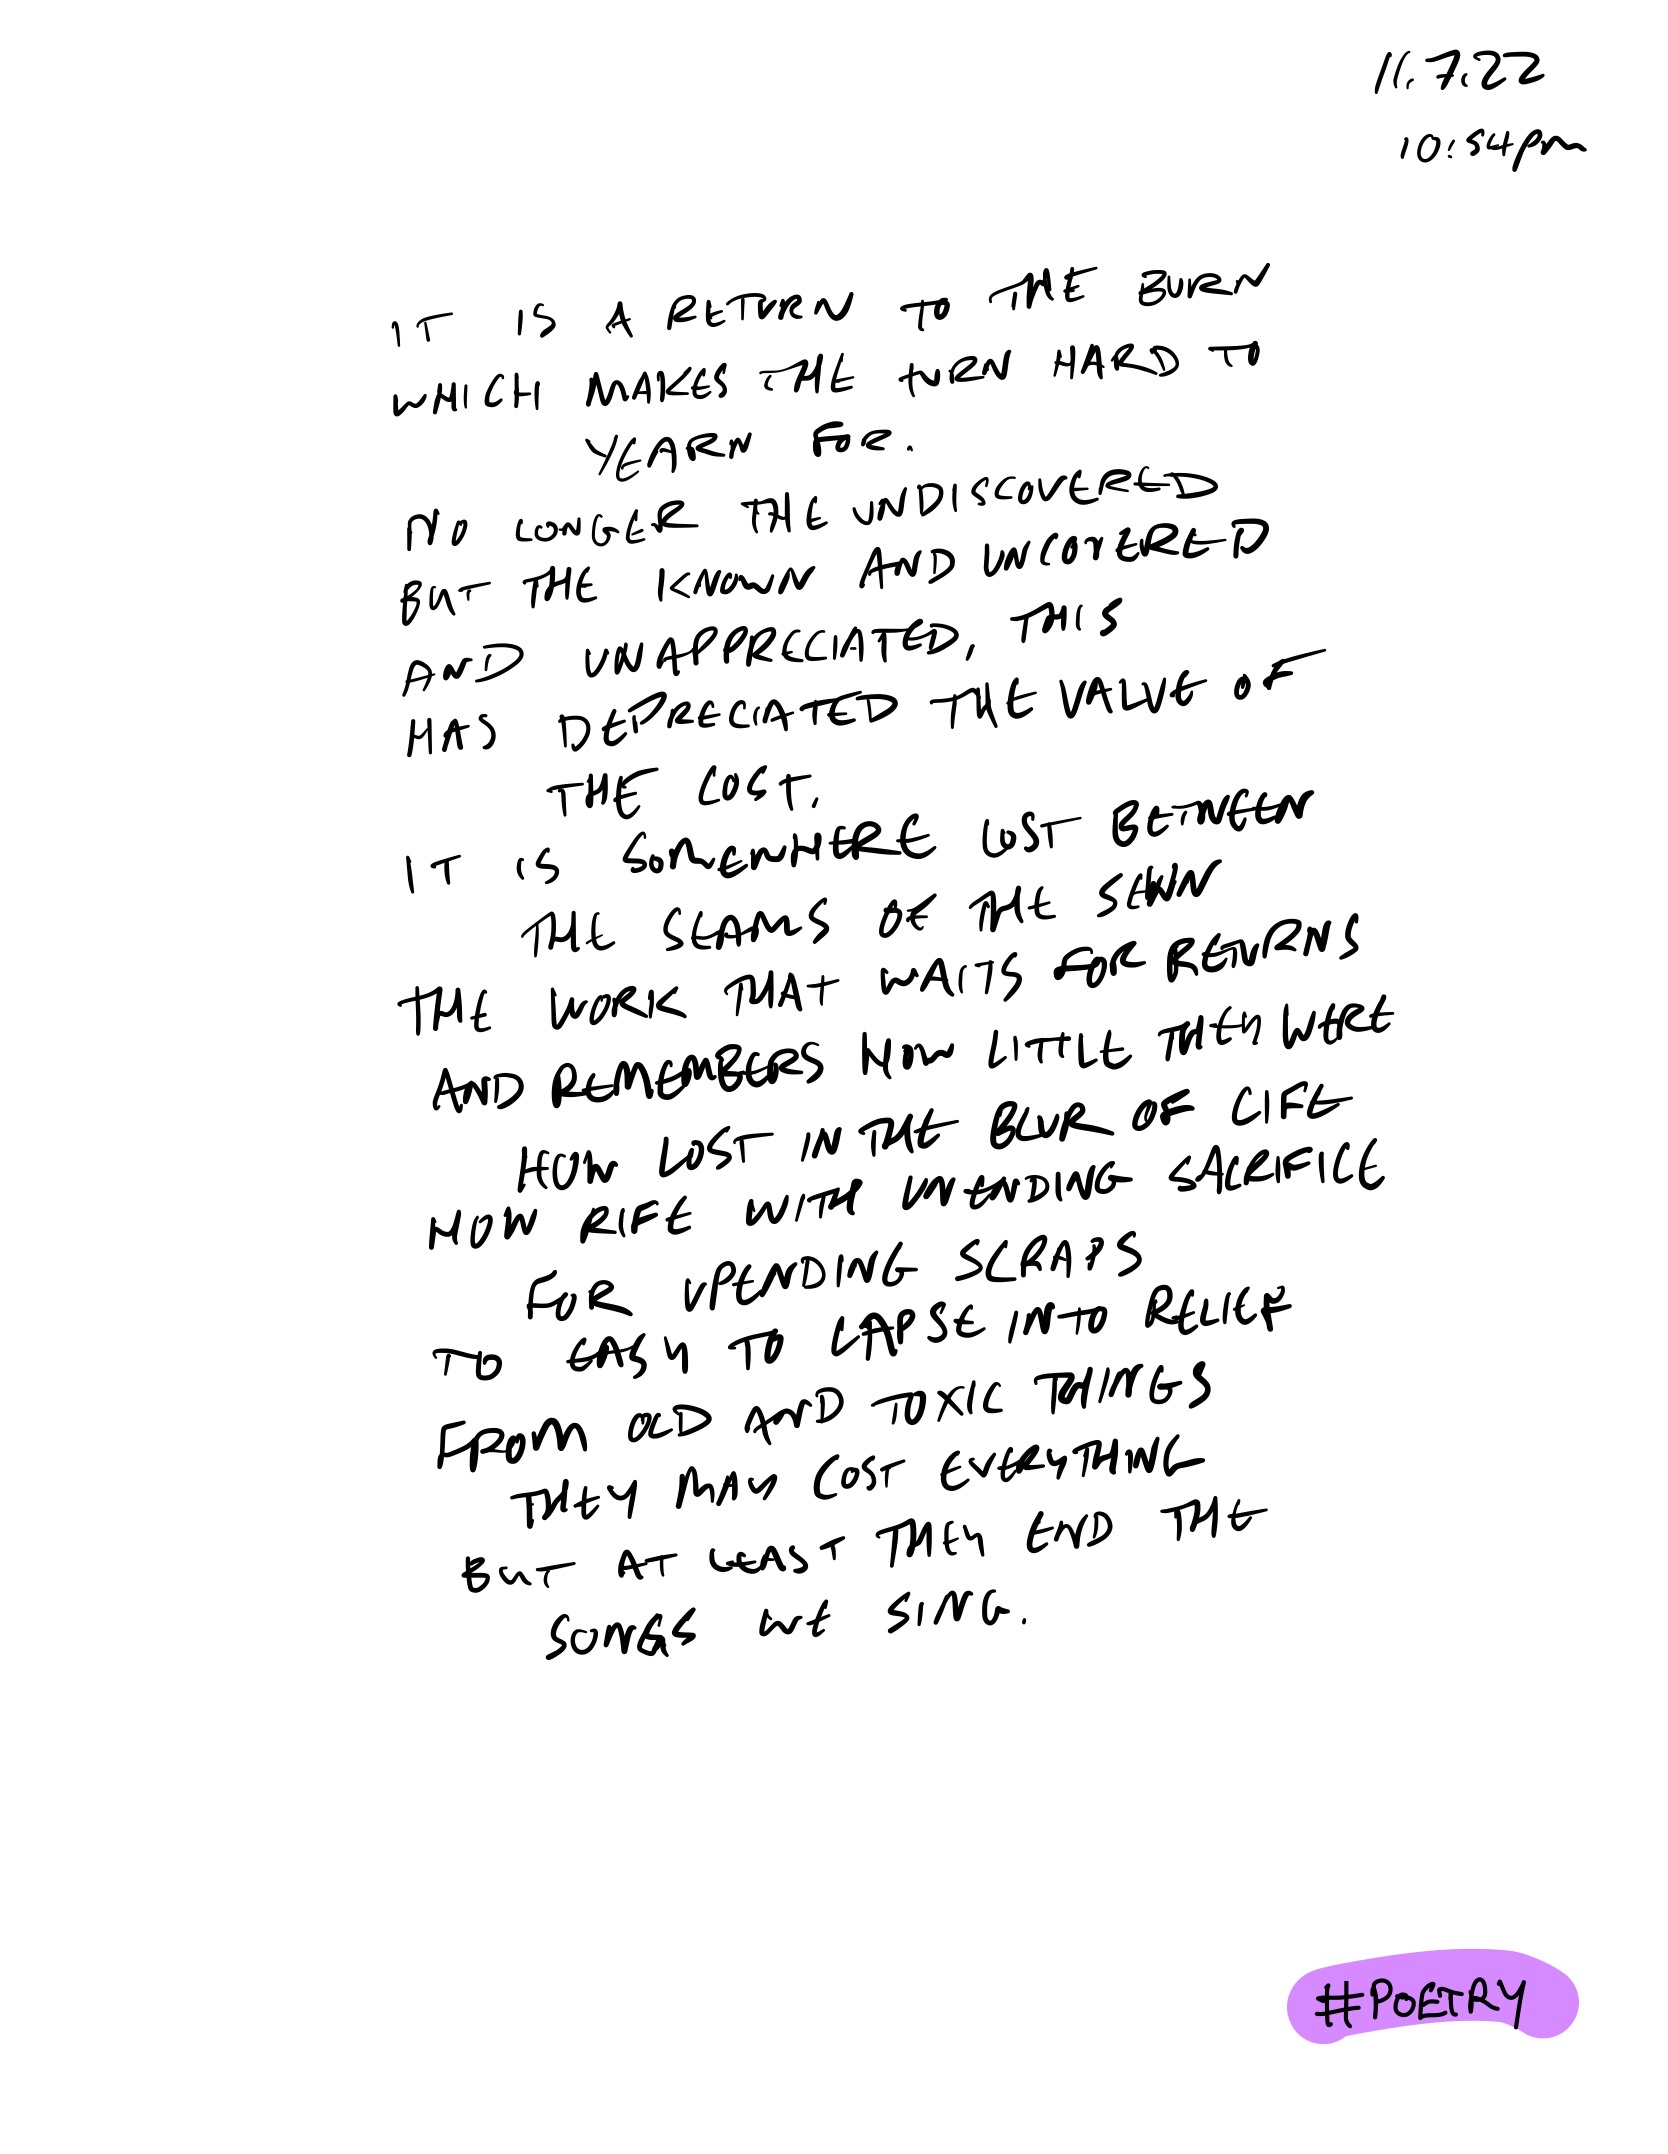 11.7.22
10:54pm
IT IS A RETURN TO THE BURN
WHICH MAKES THE TURN HARD TO
YEARN FOR.
NO LONGER THE UNDISCOVERED
BUT THE KNOWN AND UNCOVERED
AND UNAPPRECIATED, THIS
HAS DEPRECIATED THE VALUE OF
THE COST.
IT IS SOMEWHERE LOST BETWEEN
THE SEAMS OF THE SEWN
THE WORK THAT WAITS FOR RETURNS
AND REMEMBERS HOW LITTLE THEY WERE
HOW LOST IN THE BLUR OF LIFE
HOW RIFE WITH UNENDING SACRIFICE
FOR UPENDING SCRAPS
TO EASY TO LAPSE INTO RELIEF
FROM OLD AND TOXIC THINGS
THEY MAY COST EVERYTHING
BUT AT LEAST THEY END THE
SONGS WE SING.
#POETRY